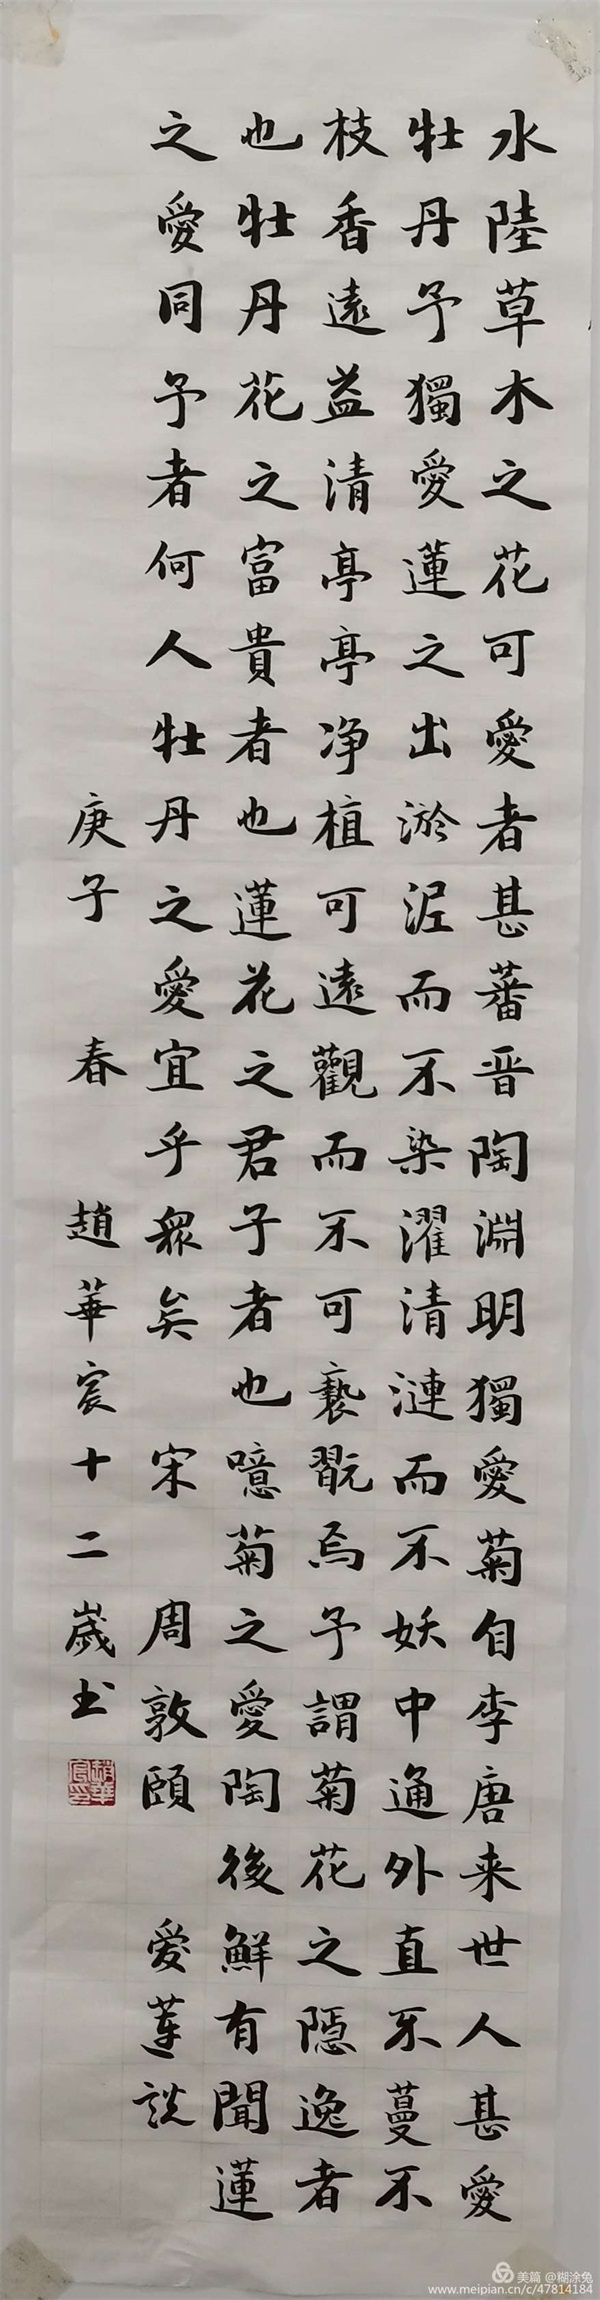 水陸草木之花可愛者甚蕃晋陶淵明獨愛菊自李唐来世人甚愛
牡丹予獨愛蓮之出淤泥而不染濯清漣而不妖中通外直不蔓不
枝香遠益清亭亭净植可遠觀而不可褻翫焉予謂菊花之隠逸者
也牡丹花之富貴者也蓮花之君子者也噫菊之愛陶後鮮有聞蓮
之愛同予者何人牡丹之愛宜乎衆矣 宋 周敦頤 愛蓮説
庚子 春 趙華宸十二歲书
美篇 @糊涂兔
www.meipian.cn/c/47814184